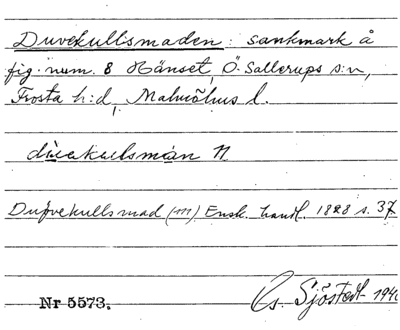 Duvekullsmaden: sankmark å
fig. num. 8 Hänset, Ö. Sallerups s:n,
Frosta h:d, Malmöhus l.
Dufvekullsmad (m) Ensk. handl. 1828 s. 37
Nr 5573.
G. Sjöstedt 1940